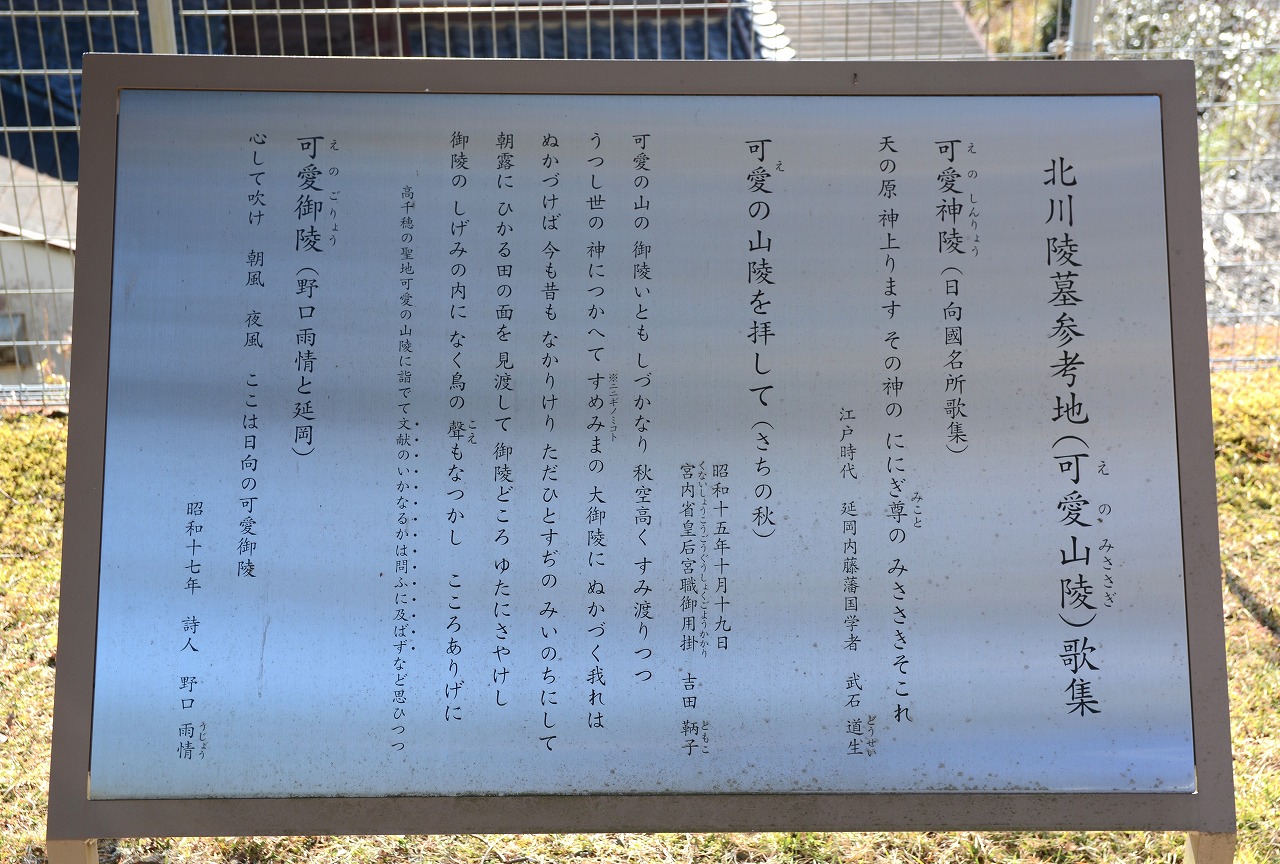 北川陵墓参考地(可愛山陵)歌集
えのみささぎ
可愛神陵(日向國名所歌集)
えのしんりょう
天の原 神上ります その神の ににぎ尊の みささきそこれ
みこと
江戸時代 延岡内藤藩国学者 武石 道生
どうせい
可愛の山陵を拝して(さちの秋)
え
昭和十五年十月十九日
宮内省皇后宮職御用掛 吉田 鞆子
くないしょうこうごうぐうしょくごようかかり ともこ
可愛の山の 御陵いとも しづかなり 秋空高く すみ渡りつつ
うつし世の 神につかへて すめみまの 大御陵に ぬかづく我れは
※ニニギノミコト
ぬかづけば 今も昔も なかりけり ただひとすぢの みいのちにして
朝露に ひかる田の面を 見渡して 御陵どころ ゆたにさやけし
御陵の しげみの内に なく鳥の 聲もなつかし こころありげに
こえ
高千穂の聖地可愛の山陵に詣でて文献のいかなるかは問ふに及ばずなど思ひつつ
可愛御陵(野口雨情と延岡)
えのごりょう
心して吹け 朝風 夜風 ここは日向の可愛御陵
昭和十七年 詩人 野口 雨情
うじょう